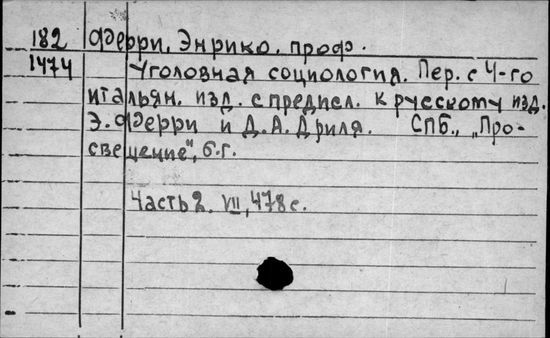 182 Ферри, Энрико, проф.
1474 Уголовная социология. Пер. с 4-го
итальян. изд. с предисл. к русскому изд.
Э. Ферри и Д. А. Дриля. СПБ., „Про-
свещение", б. г.
Часть 2. VII, 478 с.